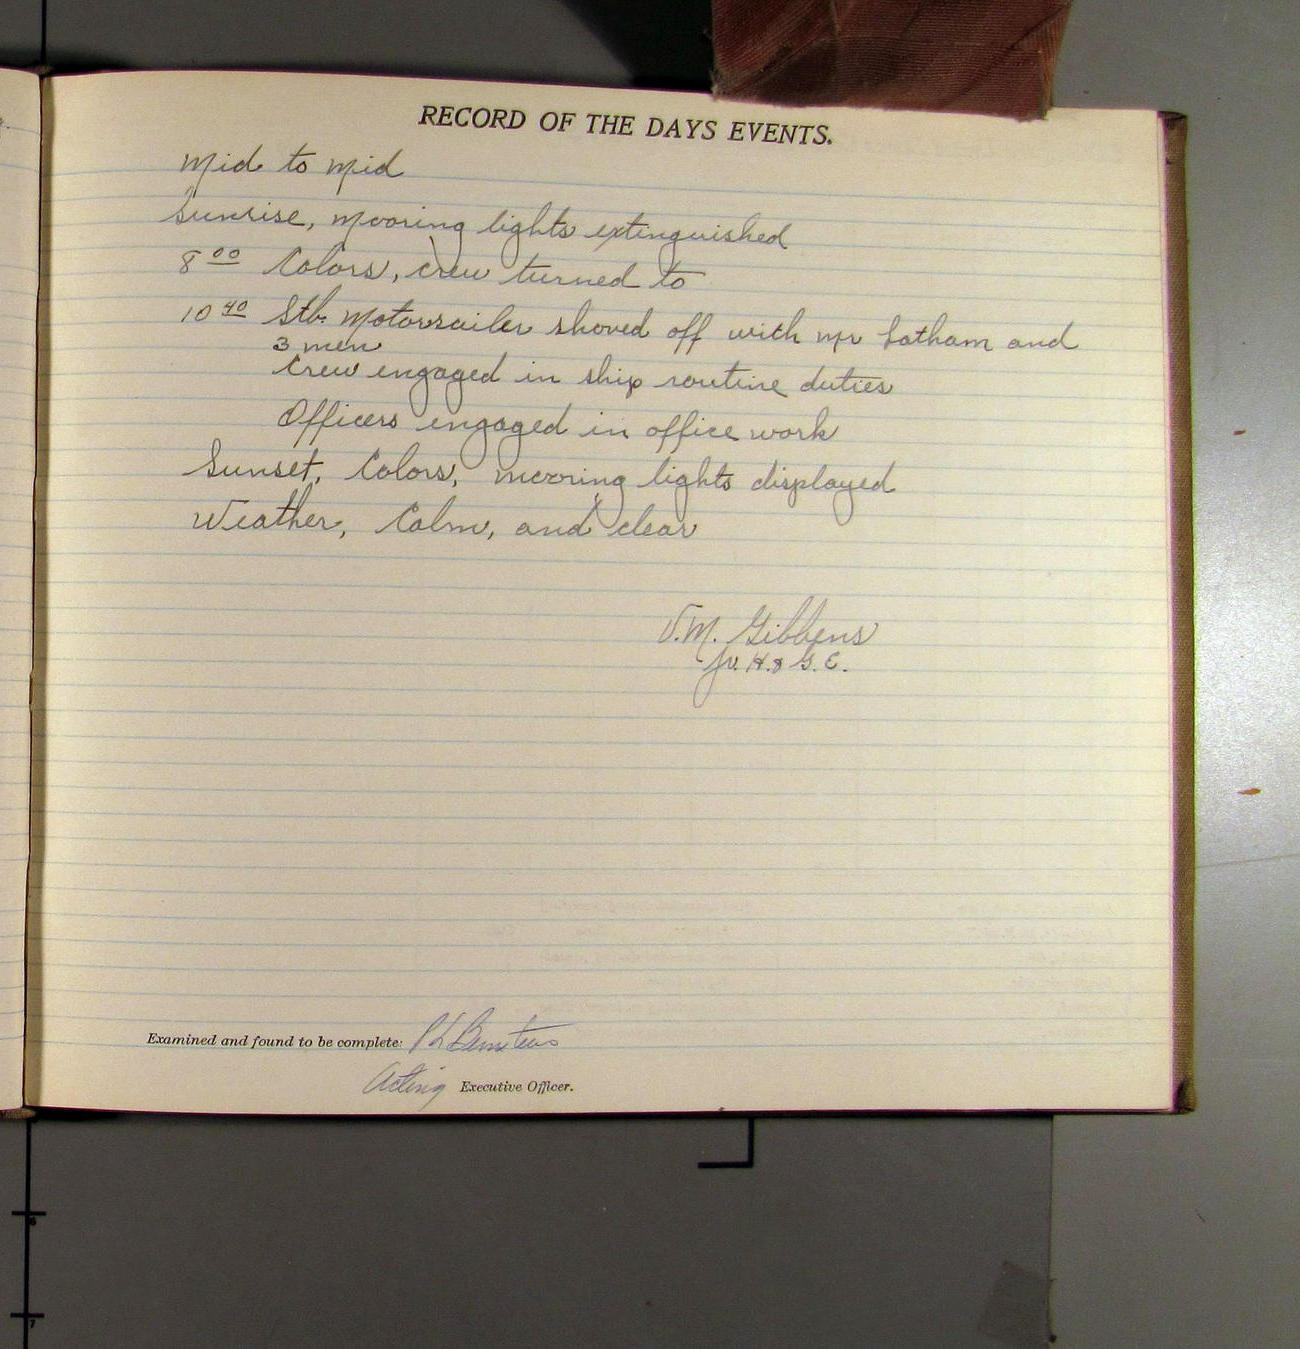 RECORD OF THE DAYS EVENTS.
Mid to Mid
Sunrise, Mooring lights extinguished
8 00 Colors, crew turned to
10 40 Stb. Motorsailer shoved off with Mr Latham and
3 men
Crew engaged in ship routine duties
Officers engaged in office work
Sunset, Colors, mooring lights displayed
Weather, Calm, and clear
V.M. Gibbens
Jr. H. & G. E.
Examined and found to be complete: P L Bernstein
Acting Executive Officer.
6
7